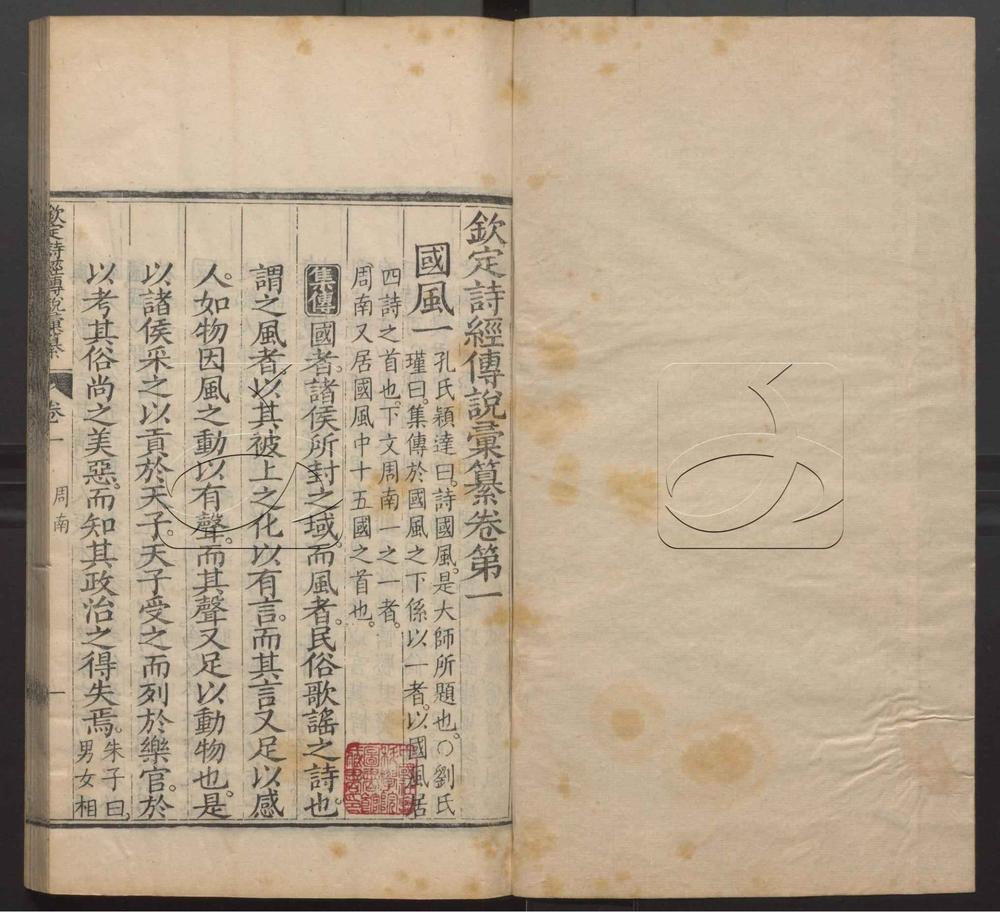 欽定詩經傳說彙纂卷第一
國風一
孔氏穎達曰。詩國風。是大師所題也。○劉氏
瑾曰。集傳於國風之下係以一者。以國風居
四詩之首也。下文周南一之一者。
周南又居國風中十五國之首也。
集傳國者。諸侯所封之域。而風者。民俗歌謠之詩也。
謂之風者。以其被上之化以有言。而其言又足以感
人。如物因風之動以有聲。而其聲又足以動物也。是
以諸侯采之以貢於天子。天子受之而列於樂官。於
以考其俗尚之美惡。而知其政治之得失焉。
朱子曰。
男女相
欽定詩經傳說彙纂
卷一
周南
一